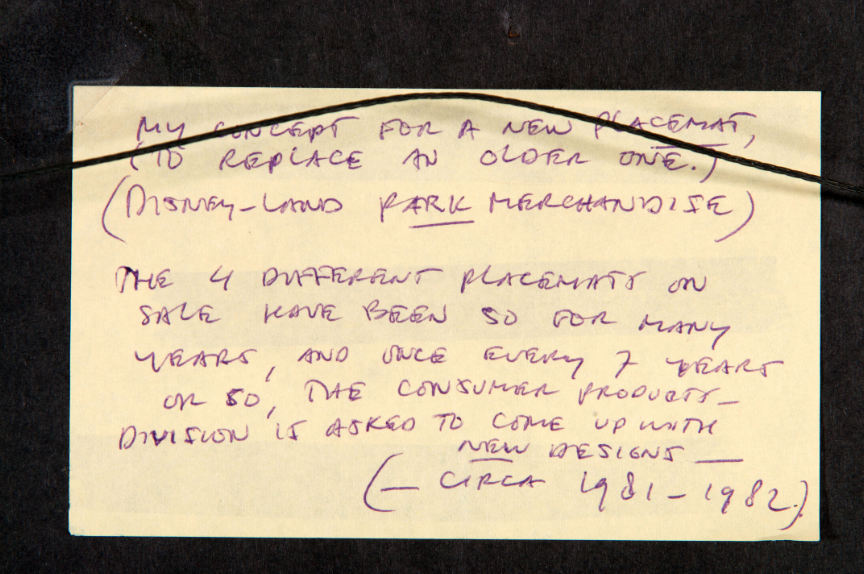 MY CONCEPT FOR A NEW PLACEMAT,
(TO REPLACE AN OLDER ONE.)
(DISNEY-LAND PARK MERCHANDISE)
THE 4 DIFFERENT PLACEMATS ON
SALE HAVE BEEN SO FOR MANY
YEARS, AND ONCE EVERY 7 YEARS
OR SO, THE CONSUMER PRODUCTS-
DIVISION IS ASKED TO COME UP WITH
NEW DESIGNS —
(— CIRCA 1981-1982.)